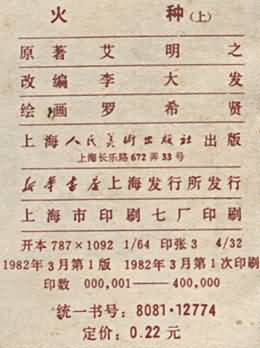 火 种(上)
原著 艾明之
改编 李大发
绘画 罗希贤
上海人民美术出版社出版
上海长乐路672弄33号
新华书店上海发行所发行
上海市印刷七厂印刷
开本 787×1092 1/64 印张 3 4/32
1982年3月第1版 1982年3月第1次印刷
印数 000,001——400,000
统一书号:8081·12774
定价:0.22元